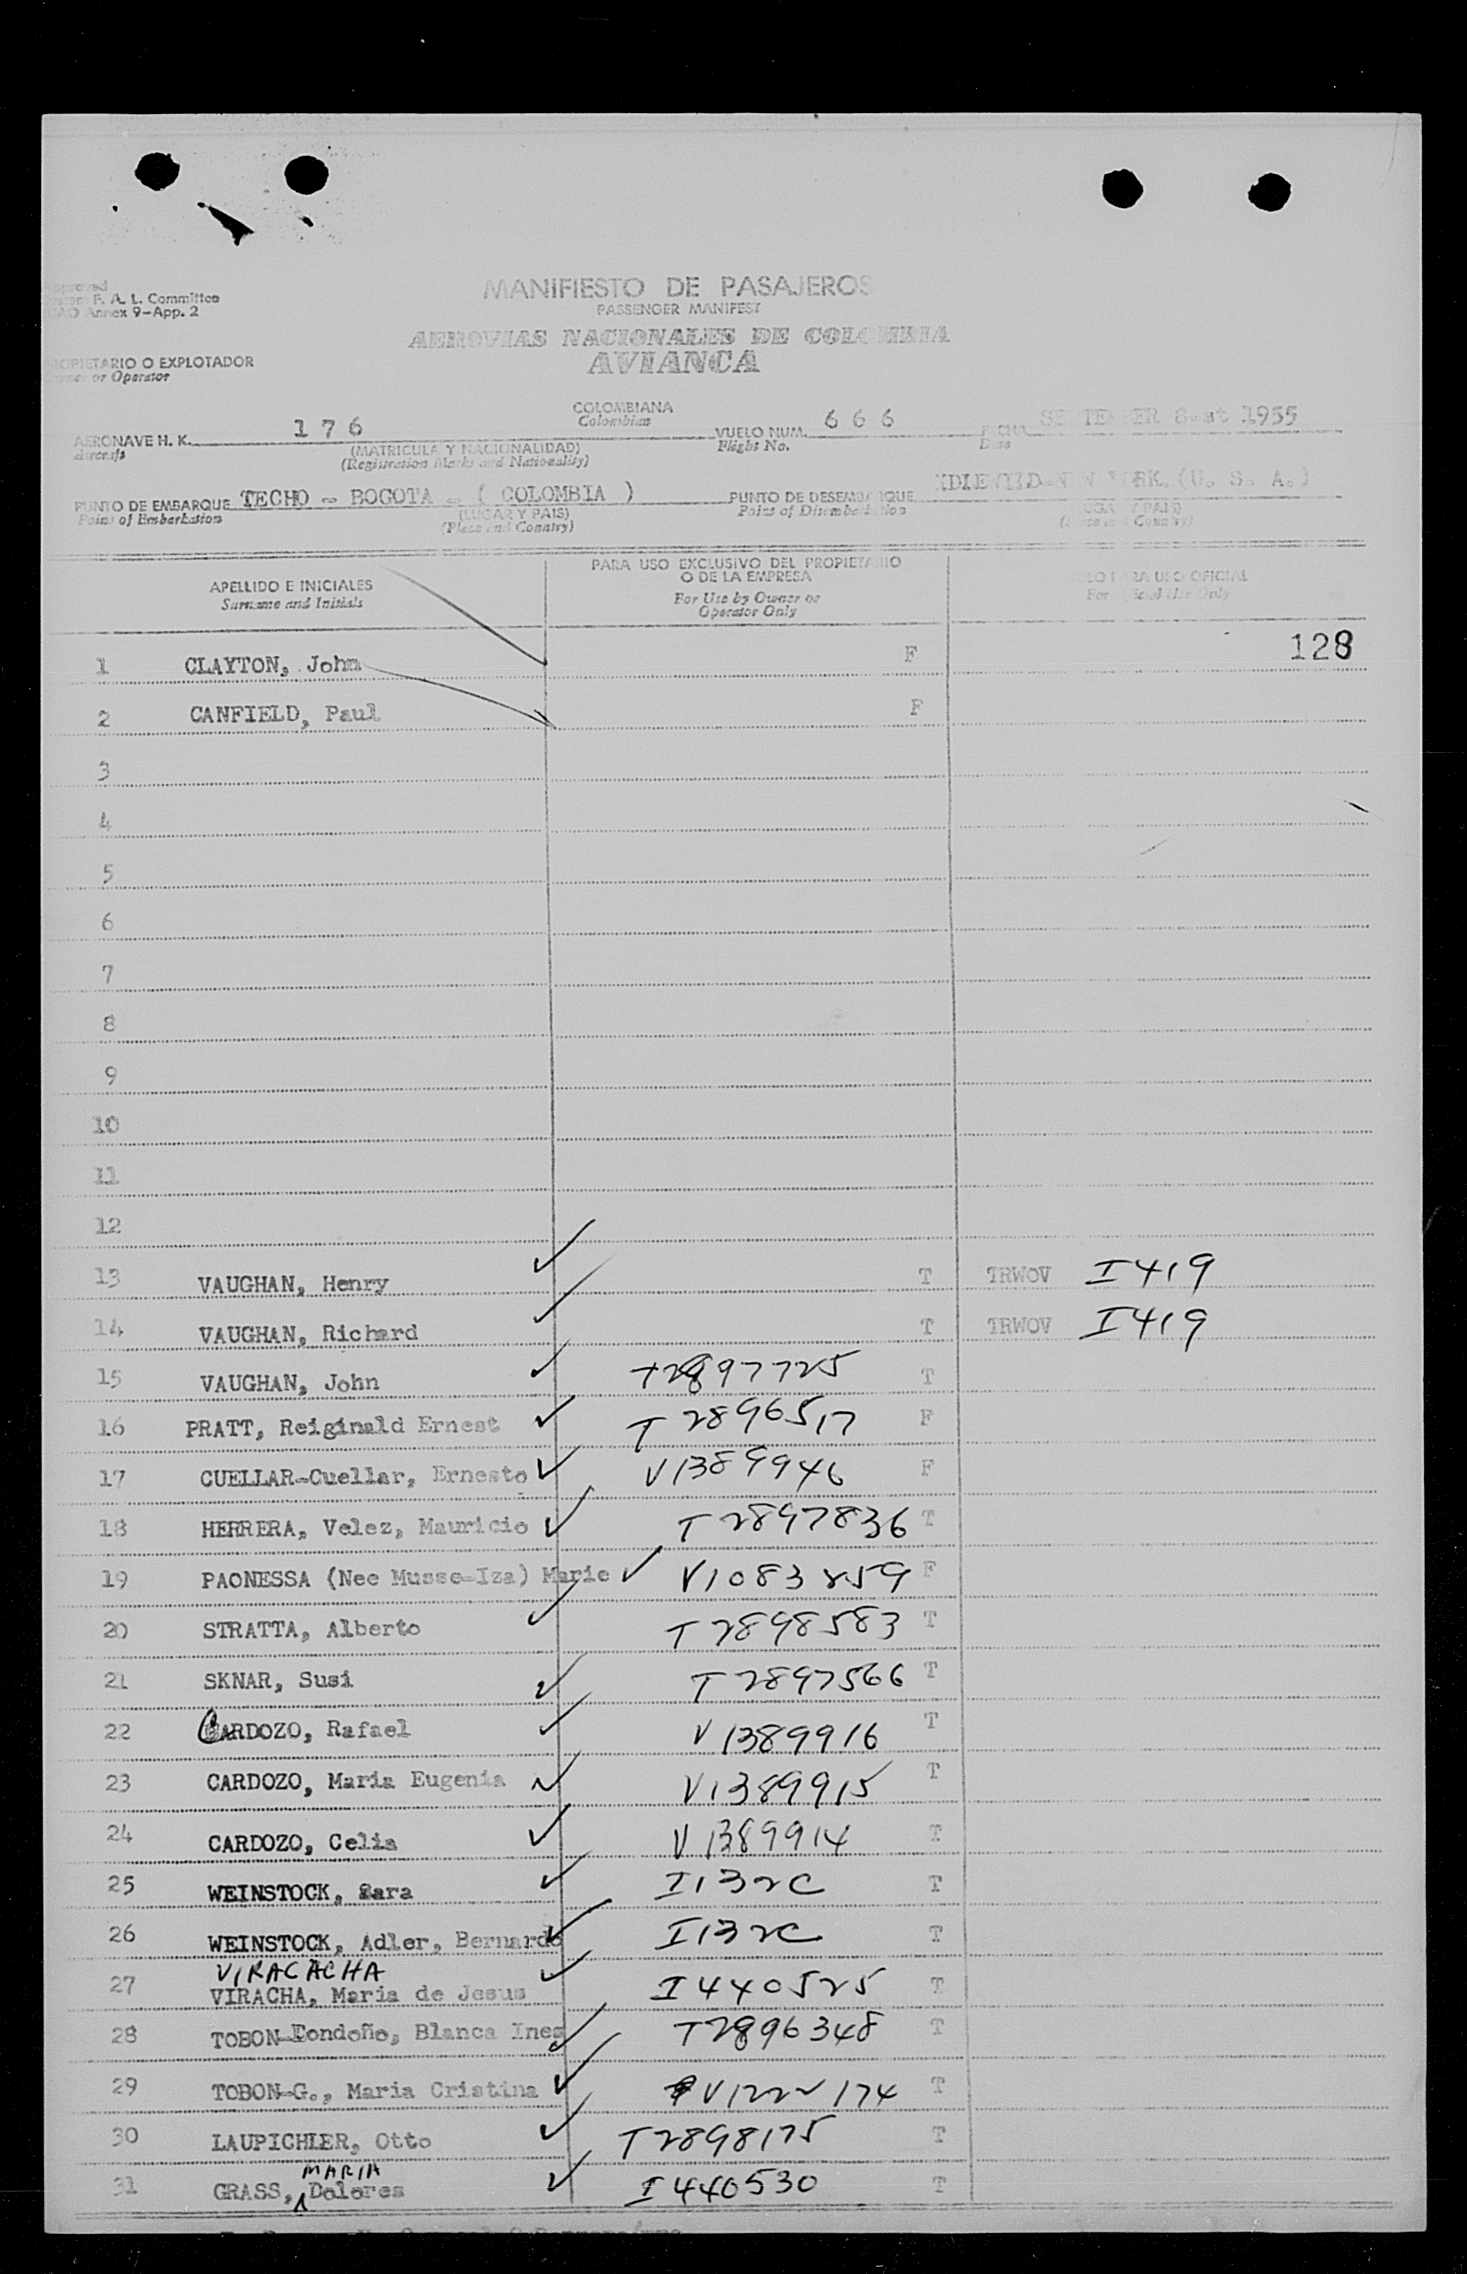 Approved
F. A. L. Committee
ICAO Annex 9-App. 2
MANIFIESTO DE PASAJEROS
PASSENGER MANIFEST
AEROVIAS NACIONALES DE COLOMBIA
AVIANCA
PROPIETARIO O EXPLOTADOR
Owner or Operator
COLOMBIANA
Colombian
AERONAVE H. K. 176 VUELO NUM. 666 FECHA SEPTEMBER 8 1955
Aircraft (MATRICULA Y NACIONALIDAD) Flight No. Date
(Registration Marks and Nationality)
PUNTO DE EMBARQUE TECHO - BOGOTA - ( COLOMBIA ) PUNTO DE DESEMBARQUE IDLEWYLD-NEW YORK. (U. S. A.)
Point of Embarkation (LUGAR Y PAIS) Point of Disembarkation (LUGAR Y PAIS)
(Place and Country) (Place and Country)
APELLIDO E INICIALES
Surname and Initials
PARA USO EXCLUSIVO DEL PROPIETARIO
O DE LA EMPRESA
For Use by Owner or
Operator Only
SOLO PARA USO OFICIAL
For Official Use Only
1 CLAYTON, John F 128
2 CANFIELD, Paul F
3
4
5
6
7
8
9
10
11
12
13 VAUGHAN, Henry T TRWOV I419
14 VAUGHAN, Richard T TRWOV I419
15 VAUGHAN, John T2897725 T
16 PRATT, Reiginald Ernest T2896517 F
17 CUELLAR-Cuellar, Ernesto V1389946 F
18 HERRERA, Velez, Mauricio T2897836 T
19 PAONESSA (Nee Musse-Iza) Marie V1083859 F
20 STRATTA, Alberto T2898583 T
21 SKNAR, Susi T2897566 T
22 CARDOZO, Rafael V1389916 T
23 CARDOZO, Maria Eugenia V1389915 T
24 CARDOZO, Celia V1389914 T
25 WEINSTOCK, Sara I132C T
26 WEINSTOCK, Adler, Bernardo I132C T
VIRACACHA
27 VIRACHA, Maria de Jesus I440525 T
28 TOBON-Londoño, Blanca Ines T2896348 T
29 TOBON-G., Maria Cristina V1222174 T
30 LAUPICHLER, Otto T2898175 T
MARIA
31 GRASS, Dolores I440530 T